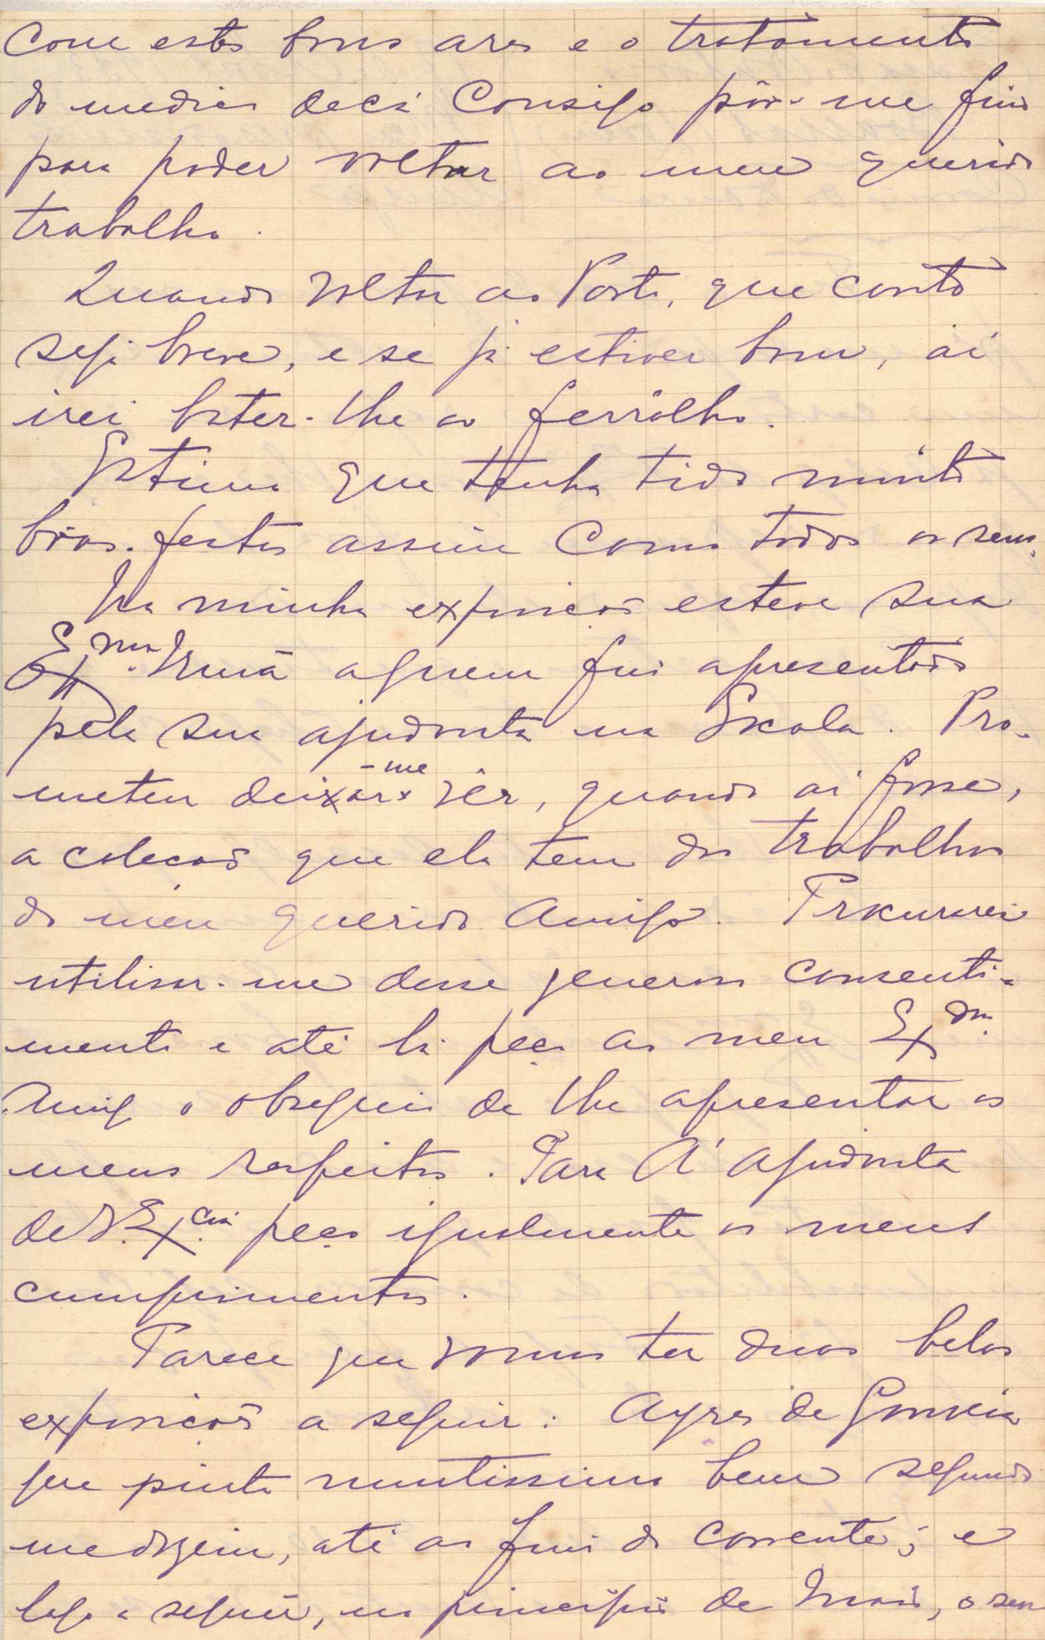 Com estes bons ares e o tratamento
do medico decá consigo pôr-me fino
para poder voltar ao meu querido
trabalho.
Quando voltar ao Porto, que conto
seja breve, e se já estiver bom, aí
irei bater-lhe ao ferrôlho.
Estimo que tenha tido muito
bôas-festas assim como todos os seus.
Na minha exposição esteve sua
Exma. Irmã a quem fui apresentado
pela sua ajudanta na Escola. Pro-
meteu deixar-me vêr, quando aí fosse,
a coleção que ela tem dos trabalhos
do meu querido Amigo. Procurarei
utilisar-me desse generoso consenti-
mento e até lá peço ao meu Exmo.
Amigo o obsequio de lhe apresentar os
meus respeitos. Para Á ajudanta
de V. Excia. peço igualmente os meus
cumprimentos.
Parece que vamos ter duas belas
exposições a seguir: Ayres de Gouveia
que pinta muitissimo bem segundo
me dizem, até ao fim do corrente; e
logo a seguir, no principio de Maio, o seu